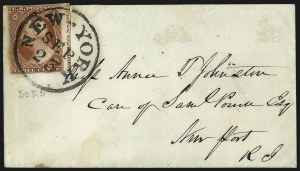 NEW-YORK
SEP
2
Annie D Johnston
Care of Saml Powel Esq
New Port
R I